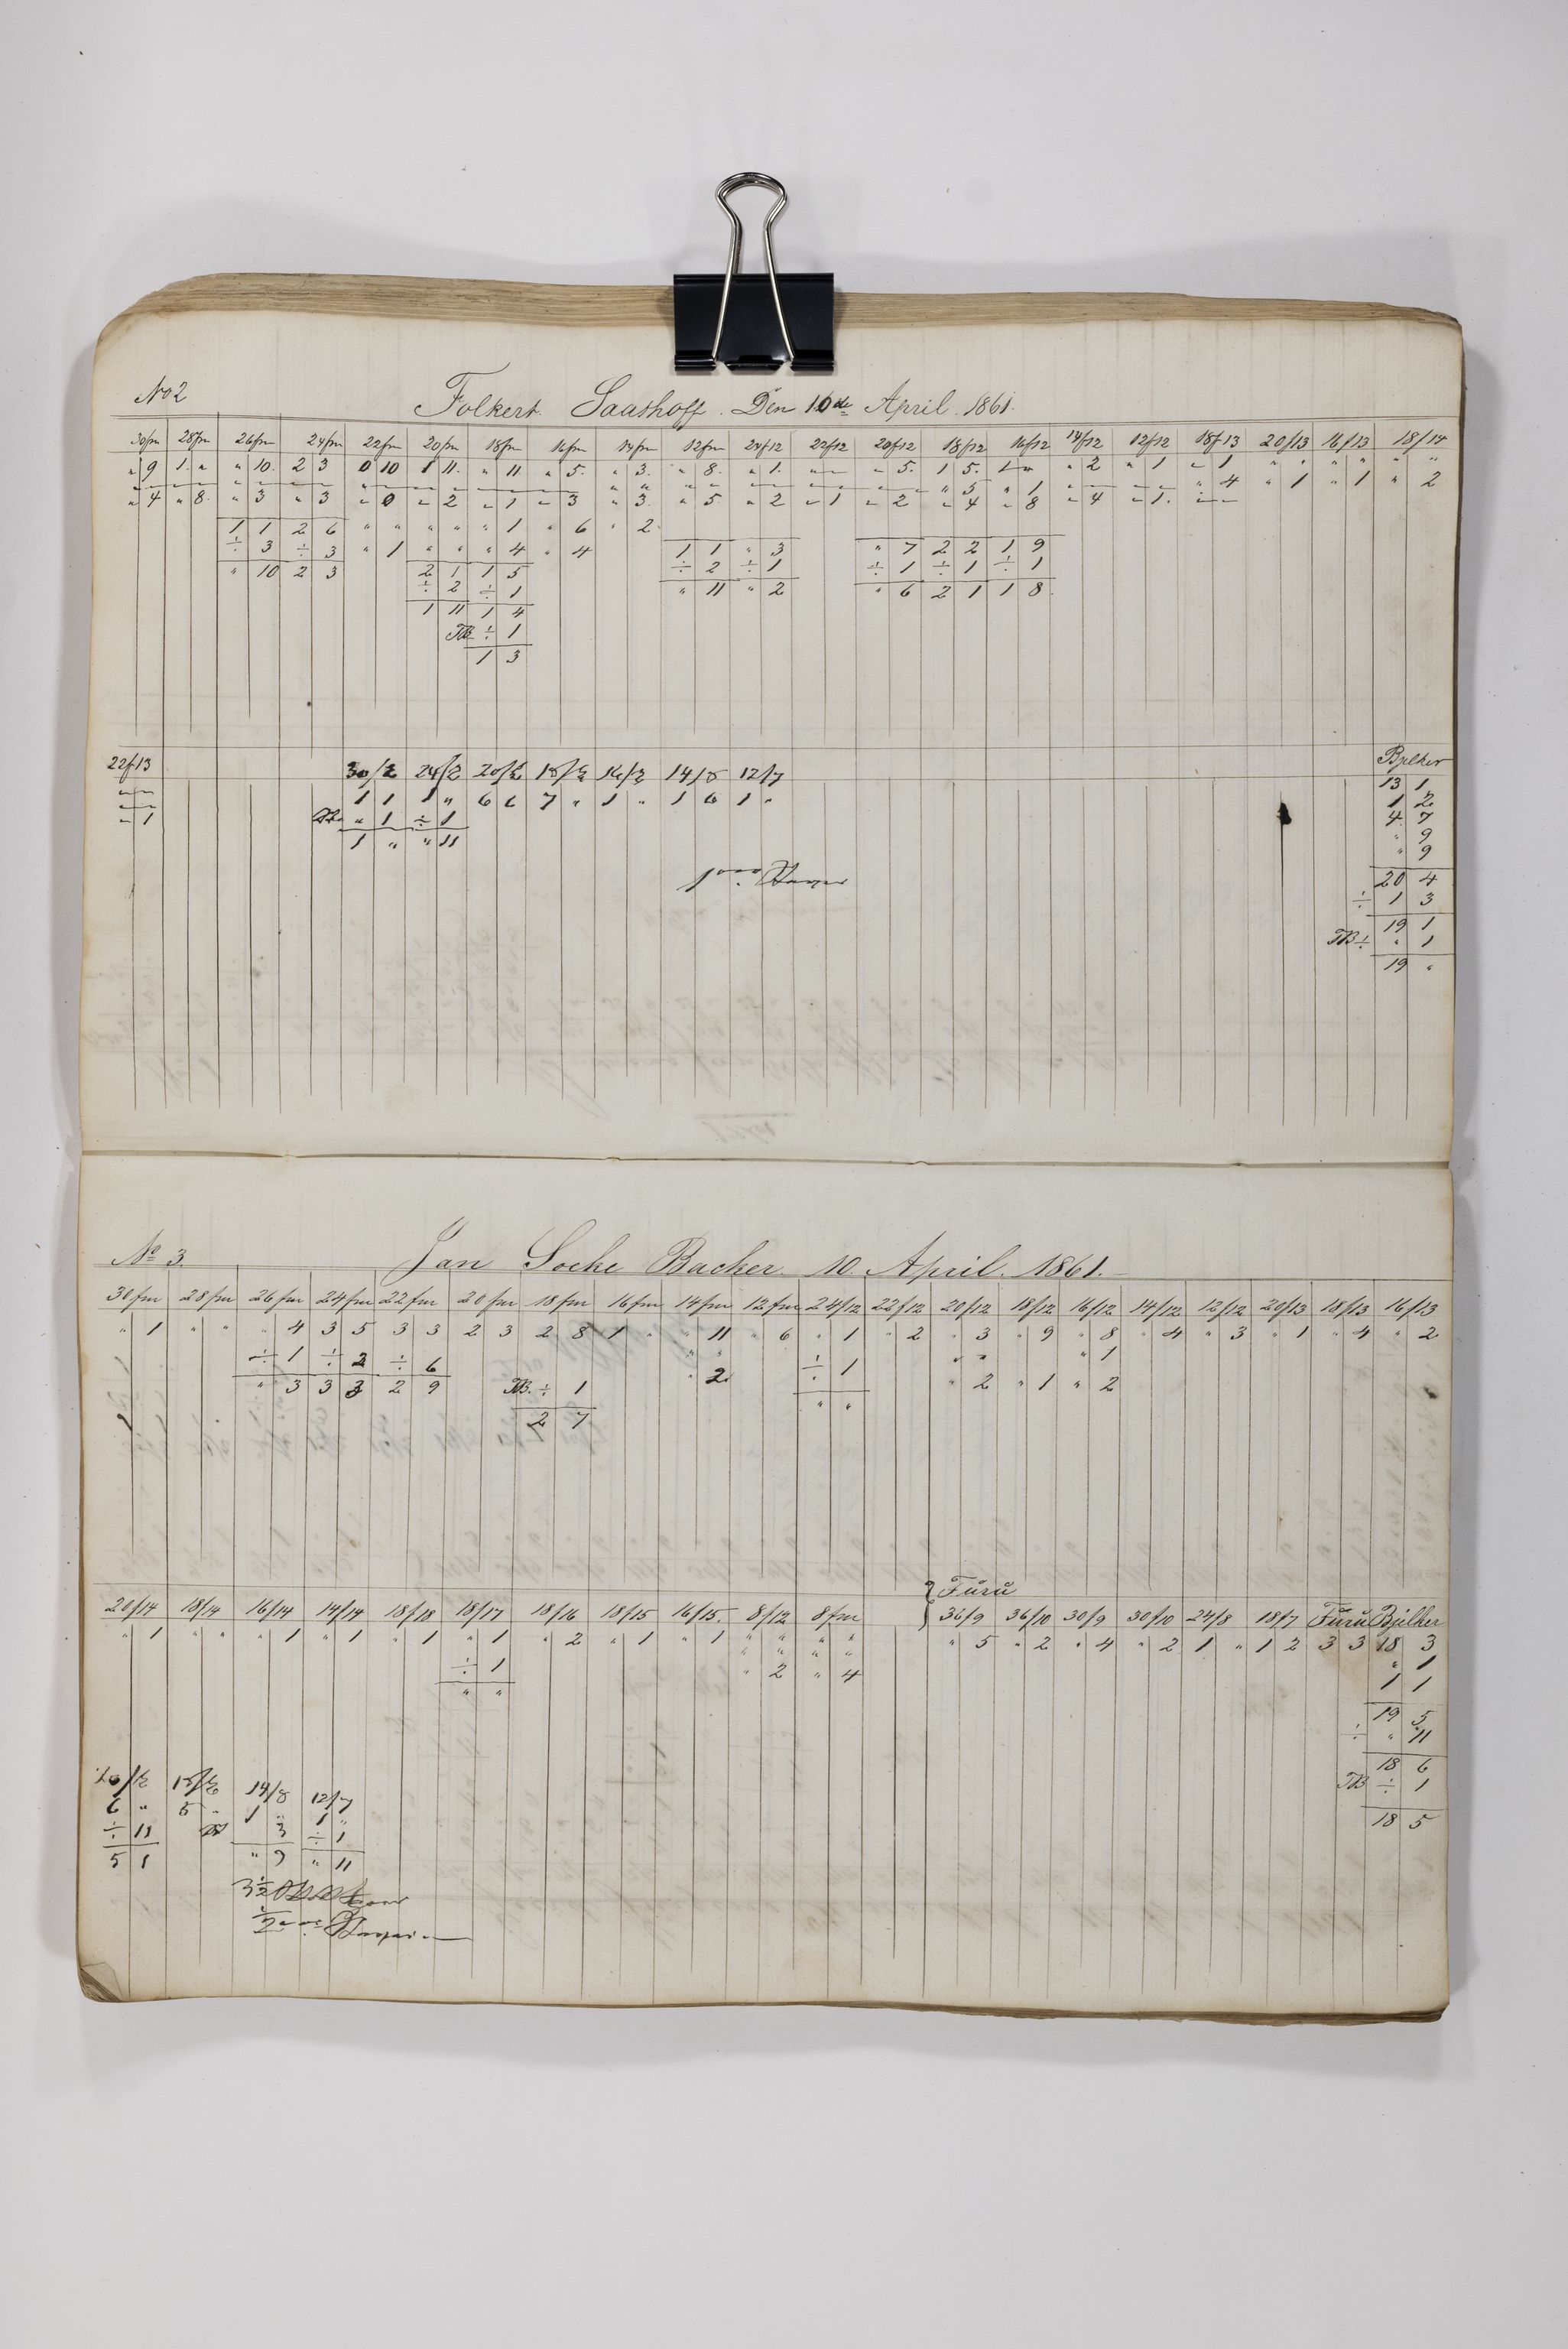 No 2
Folkert Saashoff. Den 10de April. 1861.
30fm 28fm 26fm 24fm 22fm 20fm 18fm 16fm 14fm 12fm 24f12 22f12 20f12 18f12 16f12 14f12 12f12 18f13 20f13 16f13 18f14
" 9 1 " " 10. 2 3 0 10 1 11. " 11 " 5. " 3. " 8. " 1. " " " 5. 1 5. 1 " " 2 " 1 " 1 " " " " " "
" 5 " 1 " 4 " 1 " 1 " 2
" 4 " 8. " 3 " 3 " 0 " 2 " 1 " 3 " 3. " 5 " 2 " 1 " 2 " 4 " 8 " 4 " 1. " "
1 1 2 6 " " " " " 1 " 6 " 2
÷ 3 ÷ 3 " 1 " " " 4 " 4 1 1 " 3 " 7 2 2 1 9
" 10 2 3 2 1 1 5 ÷ 2 ÷ 1 ÷ 1 ÷ 1 ÷ 1
÷ 2 ÷ 1 " 11 " 2 " 6 2 1 1 8.
1 11 1 4
TB ÷ 1
1 3
22f13 30/2 24/2 20/2 18/2 16/2 14/8 12/7 Bjelker
1 1 1 " 6 6 7 " 1 " 1 6 1 " 13 1
" 1 ÷ 1 1 2
" 1 1 " " 11 4 7
" 9
" 9
20 4
÷ 1 3
19 1
TB ÷ " 1
19 "
No 3.
Jan Socke Backer. 10. April. 1861.
30fm 28fm 26fm 24fm 22fm 20fm 18fm 16fm 14fm 12fm 24/12 22/12 20/12 18/12 16/12 14/12 12/12 20/13 18/13 16/13
" 1 " " " 4 3 5 3 3 2 3 2 8 1 " " 11 " 6 " 1 " 2 " 3 " 9 " 8 " 4 " 3 " 1 " 4 " 2
÷ 1 ÷ 2 ÷ 6 " " ÷ 1 " " " 1
" 3 3 3 2 9 TB. ÷ 1 " 2. " " " 2 " 1 " 2
2 7
Furu
20/14 18/14 16/14 14/14 18/18 18/17 18/16 18/15 16/15. 8/12 8fm 36/9 36/10 30/9 30/10 24/8 18/7 Furu Bjelker
" 1 " " " 1 " 1 " 1 " 1 " 2 " 1 " 1 " " " " " 5 " 2 " 4 " 2 1 " 1 2 3 3 18 3
÷ 1 " " " " " 1
" " " 2 " 4 1 1
19 5
÷ " 11
18 6
TB ÷ 1
18 5
20/2 18/2 14/8 12/7
6 " 5 " 1 " 1 "
÷ 11 3 ÷ 1
5 1 " 9 " 11